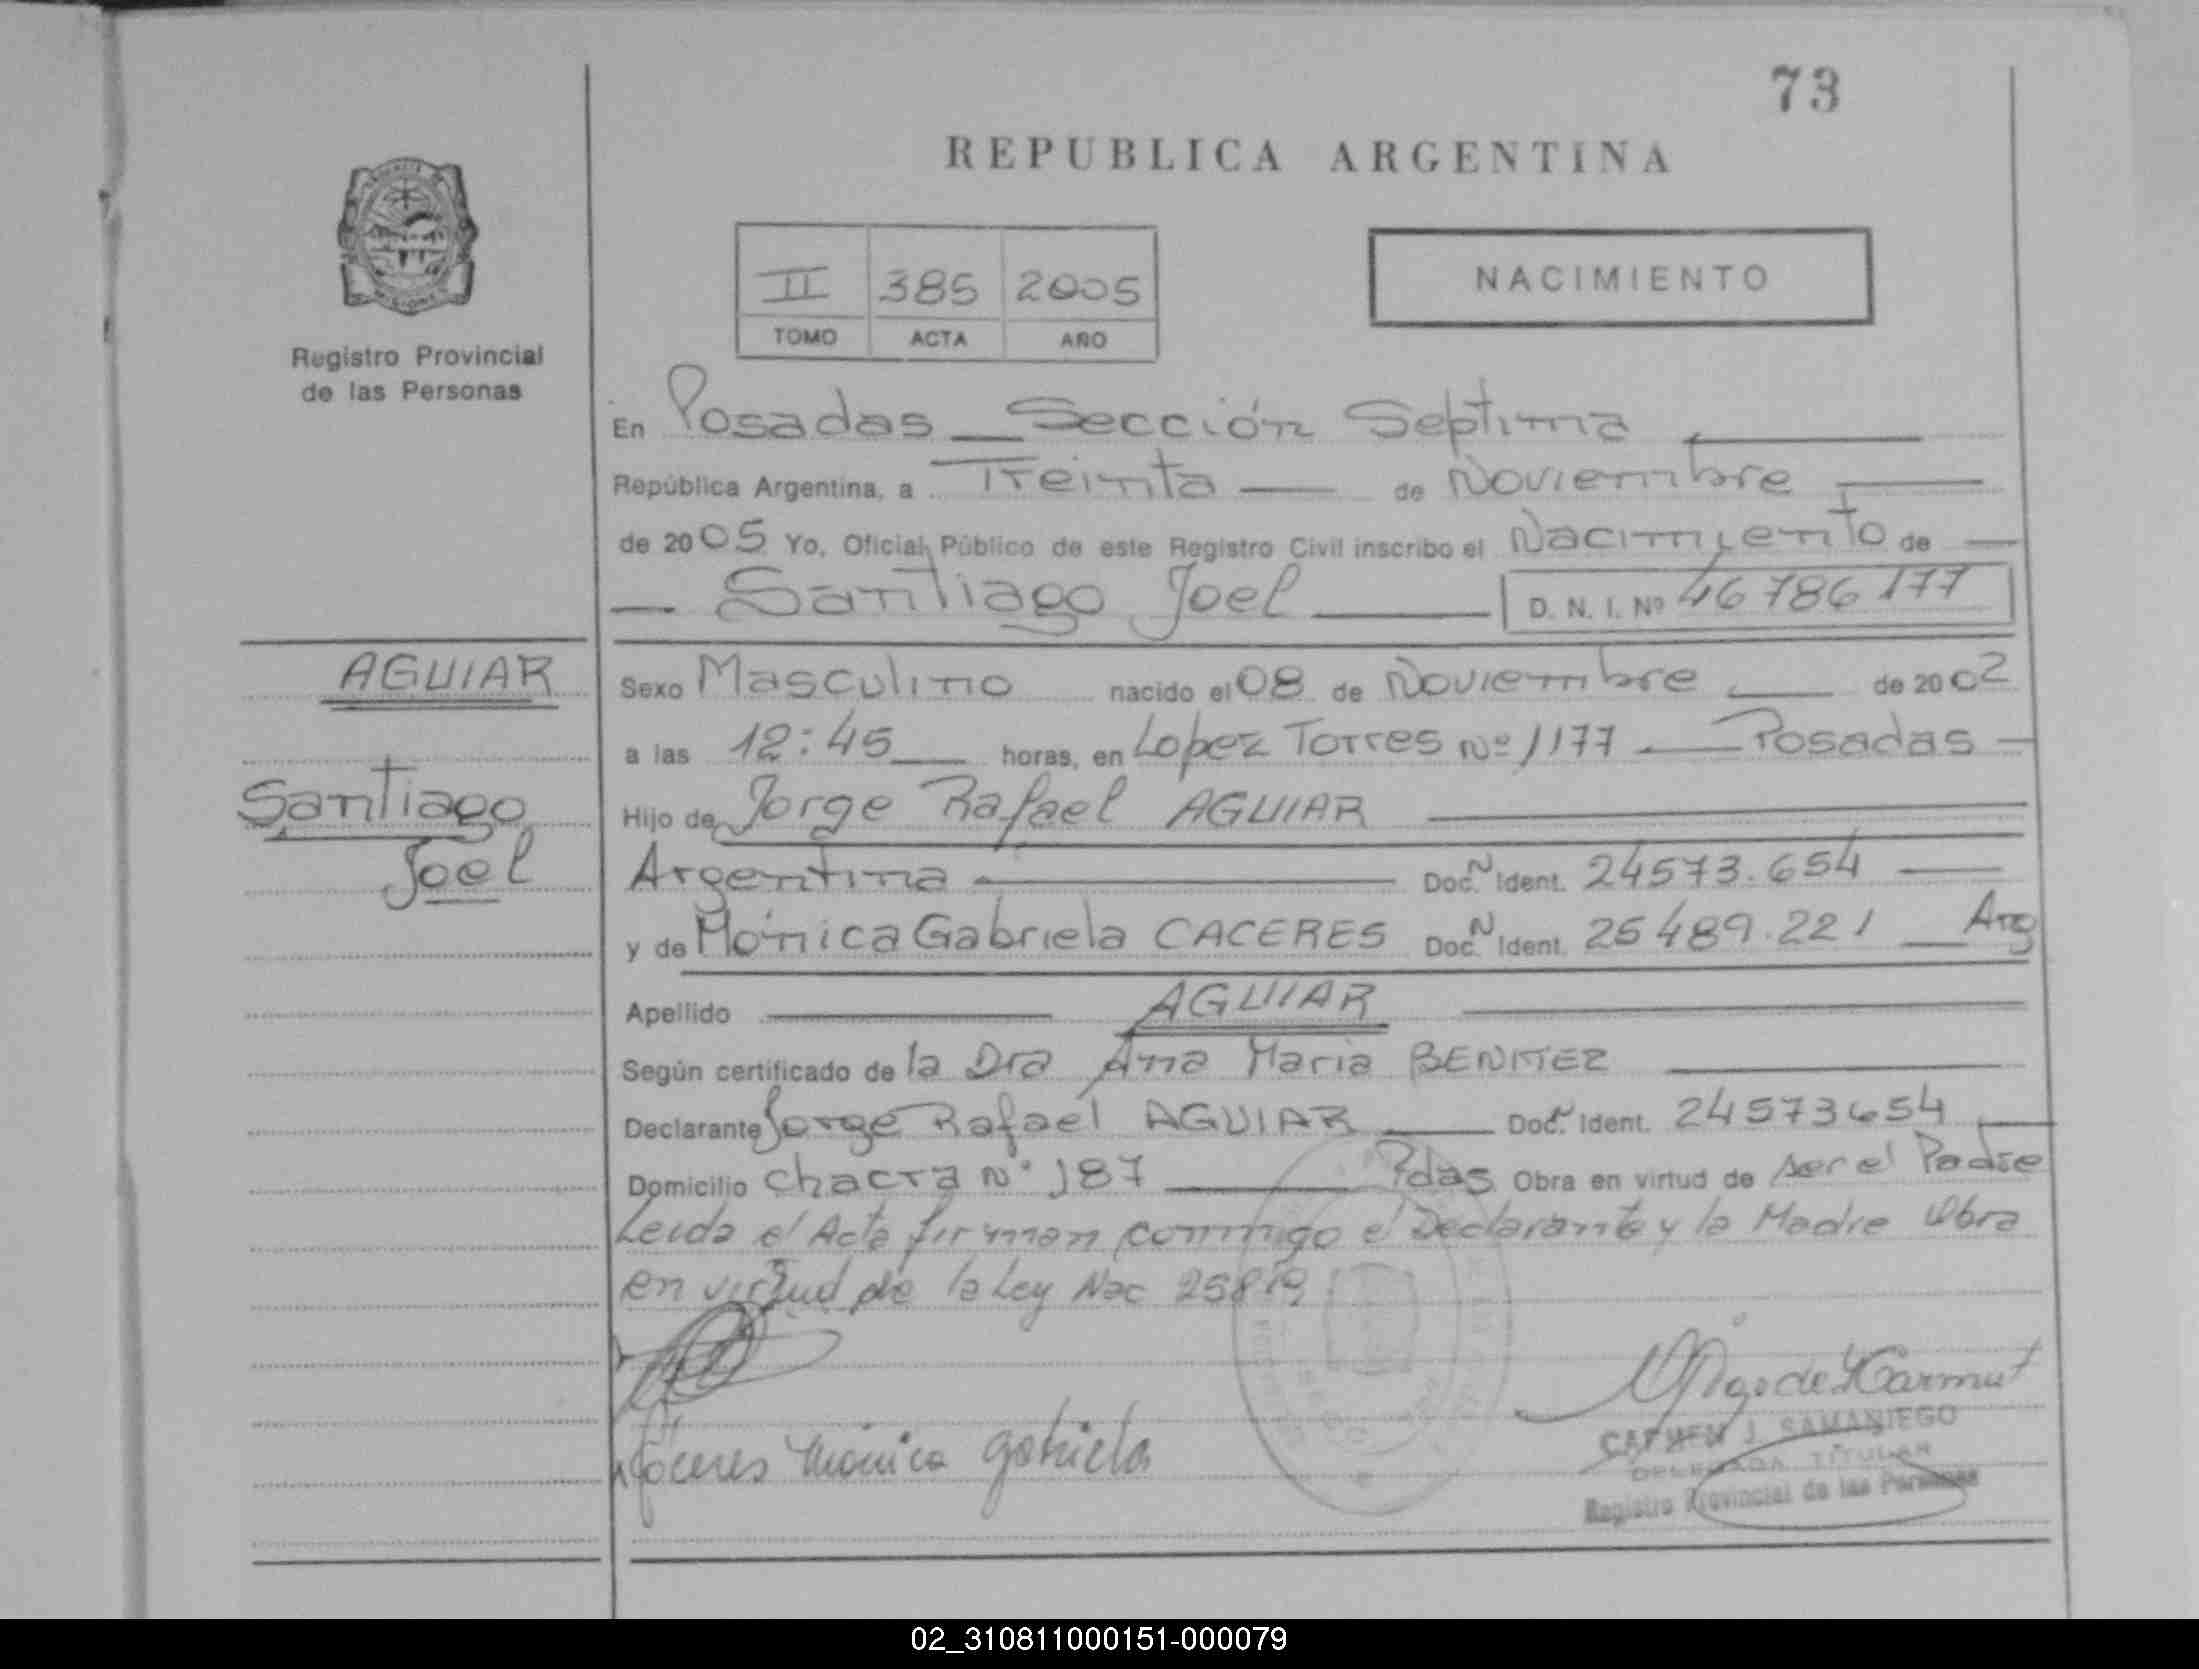 73
REPUBLICA ARGENTINA
II 385 2005
TOMO ACTA AÑO
NACIMIENTO
Registro Provincial
de las Personas
En Posadas Sección Septima
República Argentina, a Treinta de Noviembre
de 2005 Yo, Oficial Público de este Registro Civil inscribo el Nacimiento de
Santiago Joel D. N. I. Nº 46786177
AGUIAR
Santiago
Joel
Sexo Masculino nacido el 08 de Noviembre de 2002
a las 12:45 horas, en Lopez Torres Nº 1177 Posadas
Hijo de Jorge Rafael AGUIAR
Argentina Doc. N Ident. 24573.654
y de Mónica Gabriela CACERES Doc. N Ident. 25489.221 Arg
Apellido AGUIAR
Según certificado de la Dra Ana Maria BENITEZ
Declarante Jorge Rafael AGUIAR Doc. N Ident. 24573654
Domicilio chacra Nº 187 Pdas Obra en virtud de ser el Padre
Leida el Acta firman conmigo el Declarante y la Madre Obra
en virtud de la Ley Nac 25819
Cáceres Mónica gabriela
CARMEN J. SAMANIEGO
DELEGADA TITULAR
Registro Provincial de las Personas
02_310811000151-000079